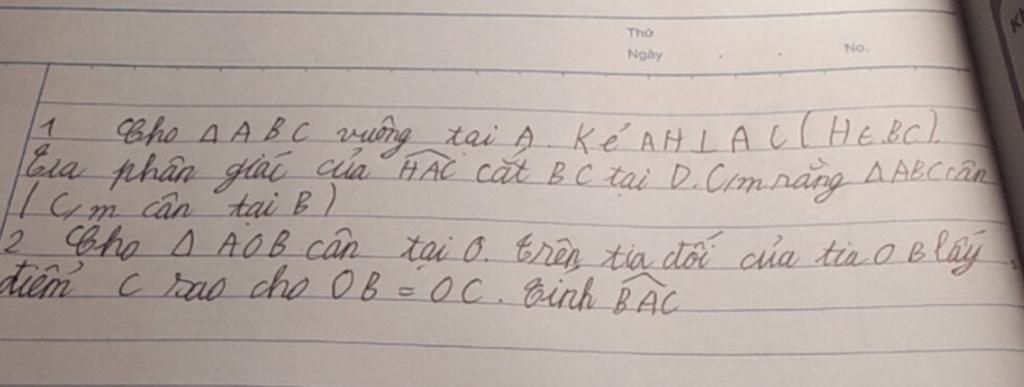 Thứ
Ngày . . No.
1 Cho ΔABC vuông tại A. Kẻ AH⊥AC (H∈BC).
Tia phân giác của \widehat{HAC} cắt BC tại D. C/m rằng ΔABC cân
(C/m cân tại B)
2 Cho Δ AOB cân tại O. Trên tia đối của tia OB lấy
điểm C sao cho OB = OC. Tính \widehat{BAC}